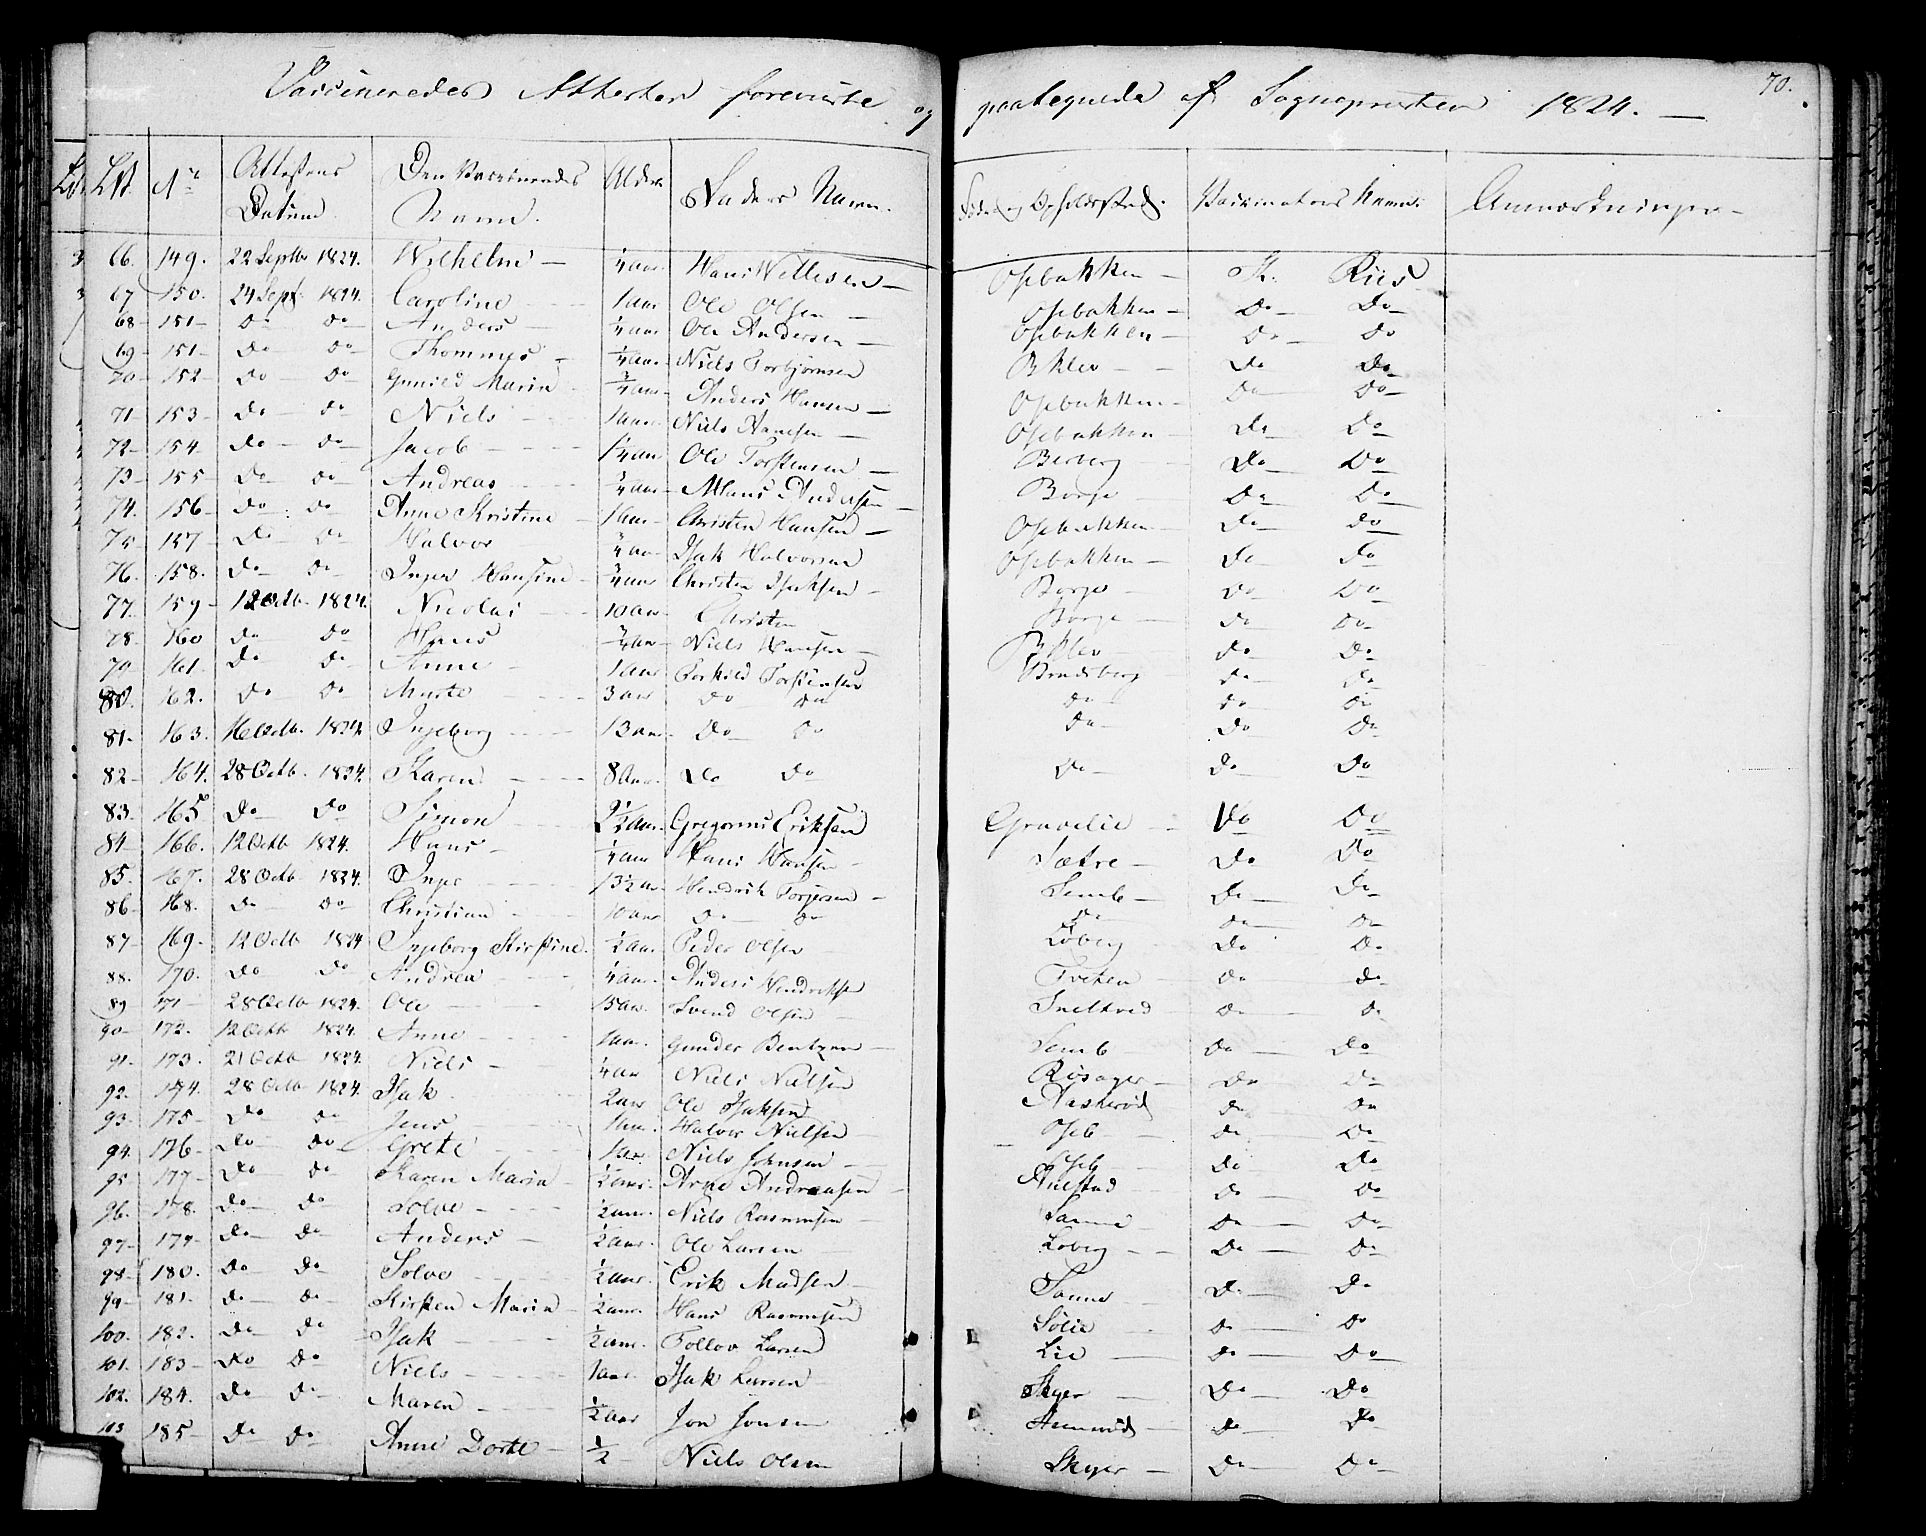 70.
Vaccineredes Attester foreviste og paategnede af Sognepresten 1824. —
Lit. No Attestens Datum. Den Vaccineredes Navn. Alder Faders Navn. Føde og Opholdssted. Vaccinatörs Navn. Anmærkninger
66. 149. 22 Septbr 1824. Wilhelm — ¼ aar Hans Willesen — Osebakken — Riis
67 150. 24 Sept 1824. Caroline 1 aar Ole Olsen — Osebakken — Do Do
68 - 151 - Do Do Anders ¼ aar Ole Andersen — Osebakken — Do Do
69 - 151 - Do Do Thommes ¼ aar Niels Torbjørnsen Do Do
70 - 152 - Do Do Gunild Maria ¾ aar Anders Hansen — Osebakken — Do Do
71 153 - Do Do Niels 1 aar Niels Hansen — Osebakken — Do Do
72 - 154 - Do Do Jacob Ole Torstensen — Do Do
73 - 155 - Do Do Andreas Andersen — Borge Do Do
74. 156 - Do Do Anne Kirstine 1 aar Christen Hansen — Osebakken — Do Do
75 - 157 - Do Do Halvor Isak Halvorsen Osebakken — Do Do
76. 158. Do Do Inger Hansine Christen Isaksen — Borge Do Do
77. 159 - 12 Octb. 1824. Nicolai 10 aar Christen Borge Do Do
78. 160 Do Do Hans Niels Hansen — Do Do
79 161 - Do Do Anne 1 aar Torkild Torstensen Do Do
80. 162. Do Do Marte 3 aar Do Do Do Do Do
81 - 163. 16 Octb. 1824 Ingeborg 13 aar Do Do Do Do Do
82 - 164. 28 Octb. 1824. Karen 8 aar Do Do Do Do Do
83 - 165 Do Do Simon Gregorius Eriksen Gravelie Do Do
84 - 166. 12 Octb 1824. Hans ¼ aar Hans Hansen Sætre — Do Do
85. 167. 28 Octb 1824. Inger 13½ aar Hendrik Torgersen Semb — Do Do
86 - 168. Do Do Christian 10 aar Do Do Do Do Do
87 - 169. 12 Octb 1824 Ingeborg Kirstine. ½ aar Peder Olsen Løberg Do Do
88. 170. Do Do Andrea ¼ aar Anders Hendriksen Do Do
89 171 - 28 Octb 1824. Ole 15 aar Svend Olsen Do Do
90 - 172. 12 Octb 1824 Anne 1 aar Gunder Bentzen — Semb Do Do
91 - 173. 21 Octb 1824 Niels ¼ aar Niels Nielsen Røsager — Do Do
92. 174. 28 Octb 1824. Isak 2 aar Ole Isaksen Do Do
93. 175 - Do Do Jens 1 aar Halvor Nielsen Oseb Do Do
94. 176 - Do Do Grete 1 aar Niels Johnsen Oseb Do Do
95 177 - Do Do Karen Maria ½ aar. Arne Andreasen Aulestad Do Do
96. 178. Do Do Solve ½ aar. Niels Rasmusen Do Do
97 - 179 - Do Do Anders ½ aar Ole Larsen Løberg — Do Do
98 - 180. Do Do Solve ½ aar. Erik Madsen Do Do
99 - 181 - Do Do Kirsten Maria ½ aar. Hans Rasmusen Sølie Do Do
100. 182. Do Do Isak ½ aar. Follov Larsen Lie Do Do
101. 183 - Do Do Niels 1 aar. Isak Larsen Skyer Do Do
102. 184. Do Do Maren ½ aar Jon Jonsen Do Do
103 185 - Do Do Anne Dorte — ½ Niels Olsen Skyer — Do Do